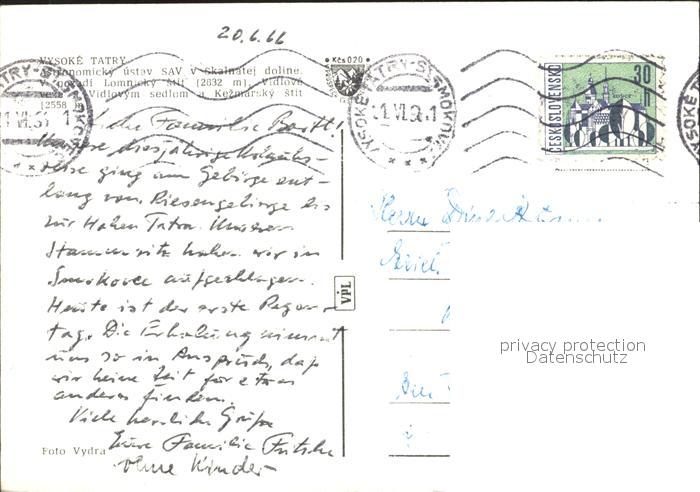 20.6.66
VYSOKÉ TATRY
Astronomický ústav SAV v Skalnatej doline.
V pozadí Lomnický štít (2632 m), Vidlové
veže s Vidlovým sedlom a Kežmarský štít
(2558
Kčs 0,20
VYSOKÉ TATRY-ST.SMOKOVEC
ČESKOSLOVENSKO
30 h
Liebe Familie
Unsere diesjährige Urlaubs-
reise ging am Gebirge ent-
lang vom Riesengebirge bis
zur Hohen Tatra. Unseren
Stammsitz haben wir in
Smokovec aufgeschlagen.
Heute ist der erste Regen-
tag. Die Erholung nimmt
uns so in Anspruch, daß
wir keine Zeit für etwas
anderes finden.
Viele herzliche Grüße
Eure Familie Fritsche
ohne Kinder
Foto Vydra
VPL
Herrn
privacy protection
Datenschutz